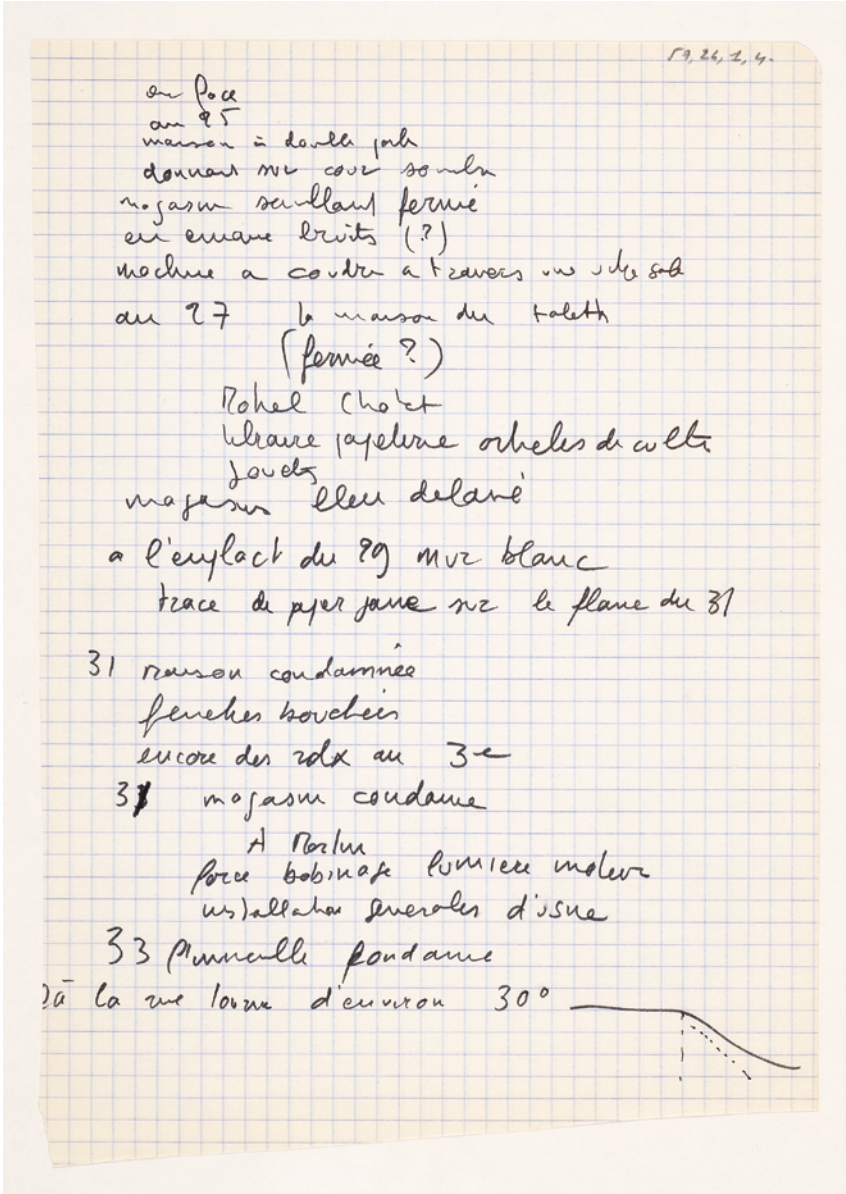 59, 26, 1, 4.
en face
au 25
maison à double porte
donnant sur cour sombre
magasin semblant fermé
en emane bruits (?)
machine a coudre a travers une
au 27 la maison du taleth
(fermée ?)
Mohel Chohet
libraire papeterie articles de culte
jouets
magasin bleu delavé
a l'emplact du 29 mur blanc
trace de papier jaune sur le flanc du 31
31 maison condamnée
fenetres bouchées
encore des rdx au 3e
31 magasin condamne
A Martin
force bobinage lumiere moteur
installation generales d'usine
33 condamne
là la rue tourne d'environ 30°